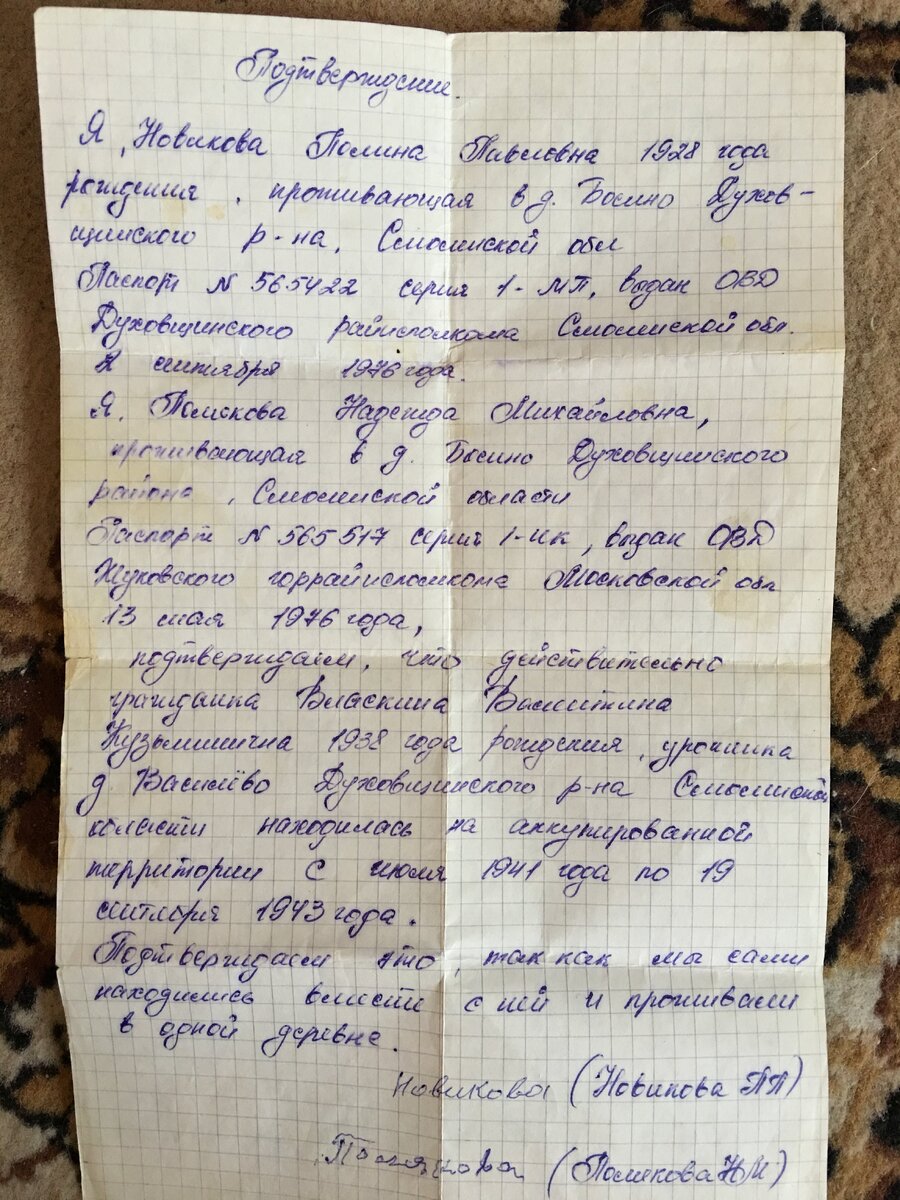 Подтверждение.
Я, Новикова Полина Павловна 1928 года
рождения, проживающая в д. Босино Духов-
щинского р-на, Смоленской обл
Паспорт N 565422 серия 1-МП, выдан ОВД
Духовщинского райисполкома Смоленской обл.
2 сентября 1976 года.
Я, Полякова Надежда Михайловна,
проживающая в д. Босино Духовщинского
района, Смоленской области
Паспорт N 565517 серия 1-ик, выдан ОВД
Жуковского горрайисполкома Московской обл
13 мая 1976 года,
подтверждаем, что действительно
гражданка Власкина Валентина
Кузьминична 1938 года рождения, уроженка
д. Василёво Духовщинского р-на Смоленской
области находилась на аккупированной
территории с июля 1941 года по 19
сентября 1943 года.
Подтверждаем это, так как мы сами
находились вместе с ней и проживали
в одной деревне.
Новикова (Новикова ПП)
Полякова (Полякова НМ)